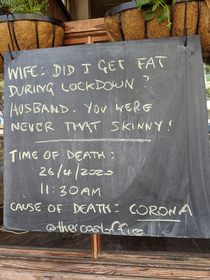 WIFE: DID I GET FAT
DURING LOCKDOWN?
HUSBAND. YOU WERE
NEVER THAT SKINNY!
TIME OF DEATH:
26/4/2020
11:30AM
CAUSE OF DEATH: CORONA
@theroastoffice